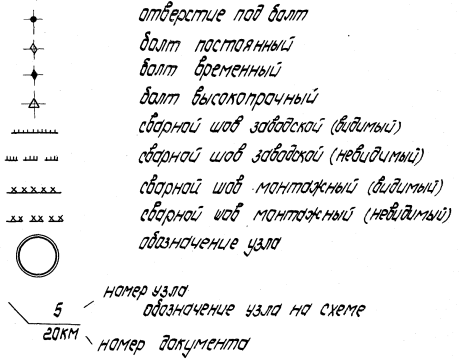 отверстие под болт
болт постоянный
болт временный
болт высокопрачный
сварной шов заводской (видимый)
сварной шов заводской (невидимый)
сварной шов монтажный (видимый)
сварной шов монтажный (невидимый)
обозначение узла
номер узла
5 обозначение узла на схеме
20КМ
номер документа